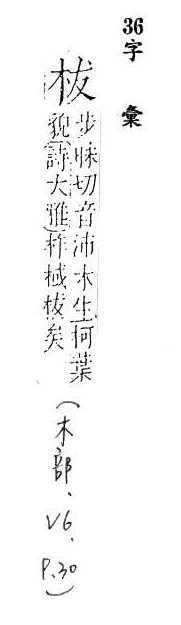 36
字彙
柭
步昧切音沛木生柯葉
貌(詩大雅)柞棫柭矣
(木部、V6、P.30)